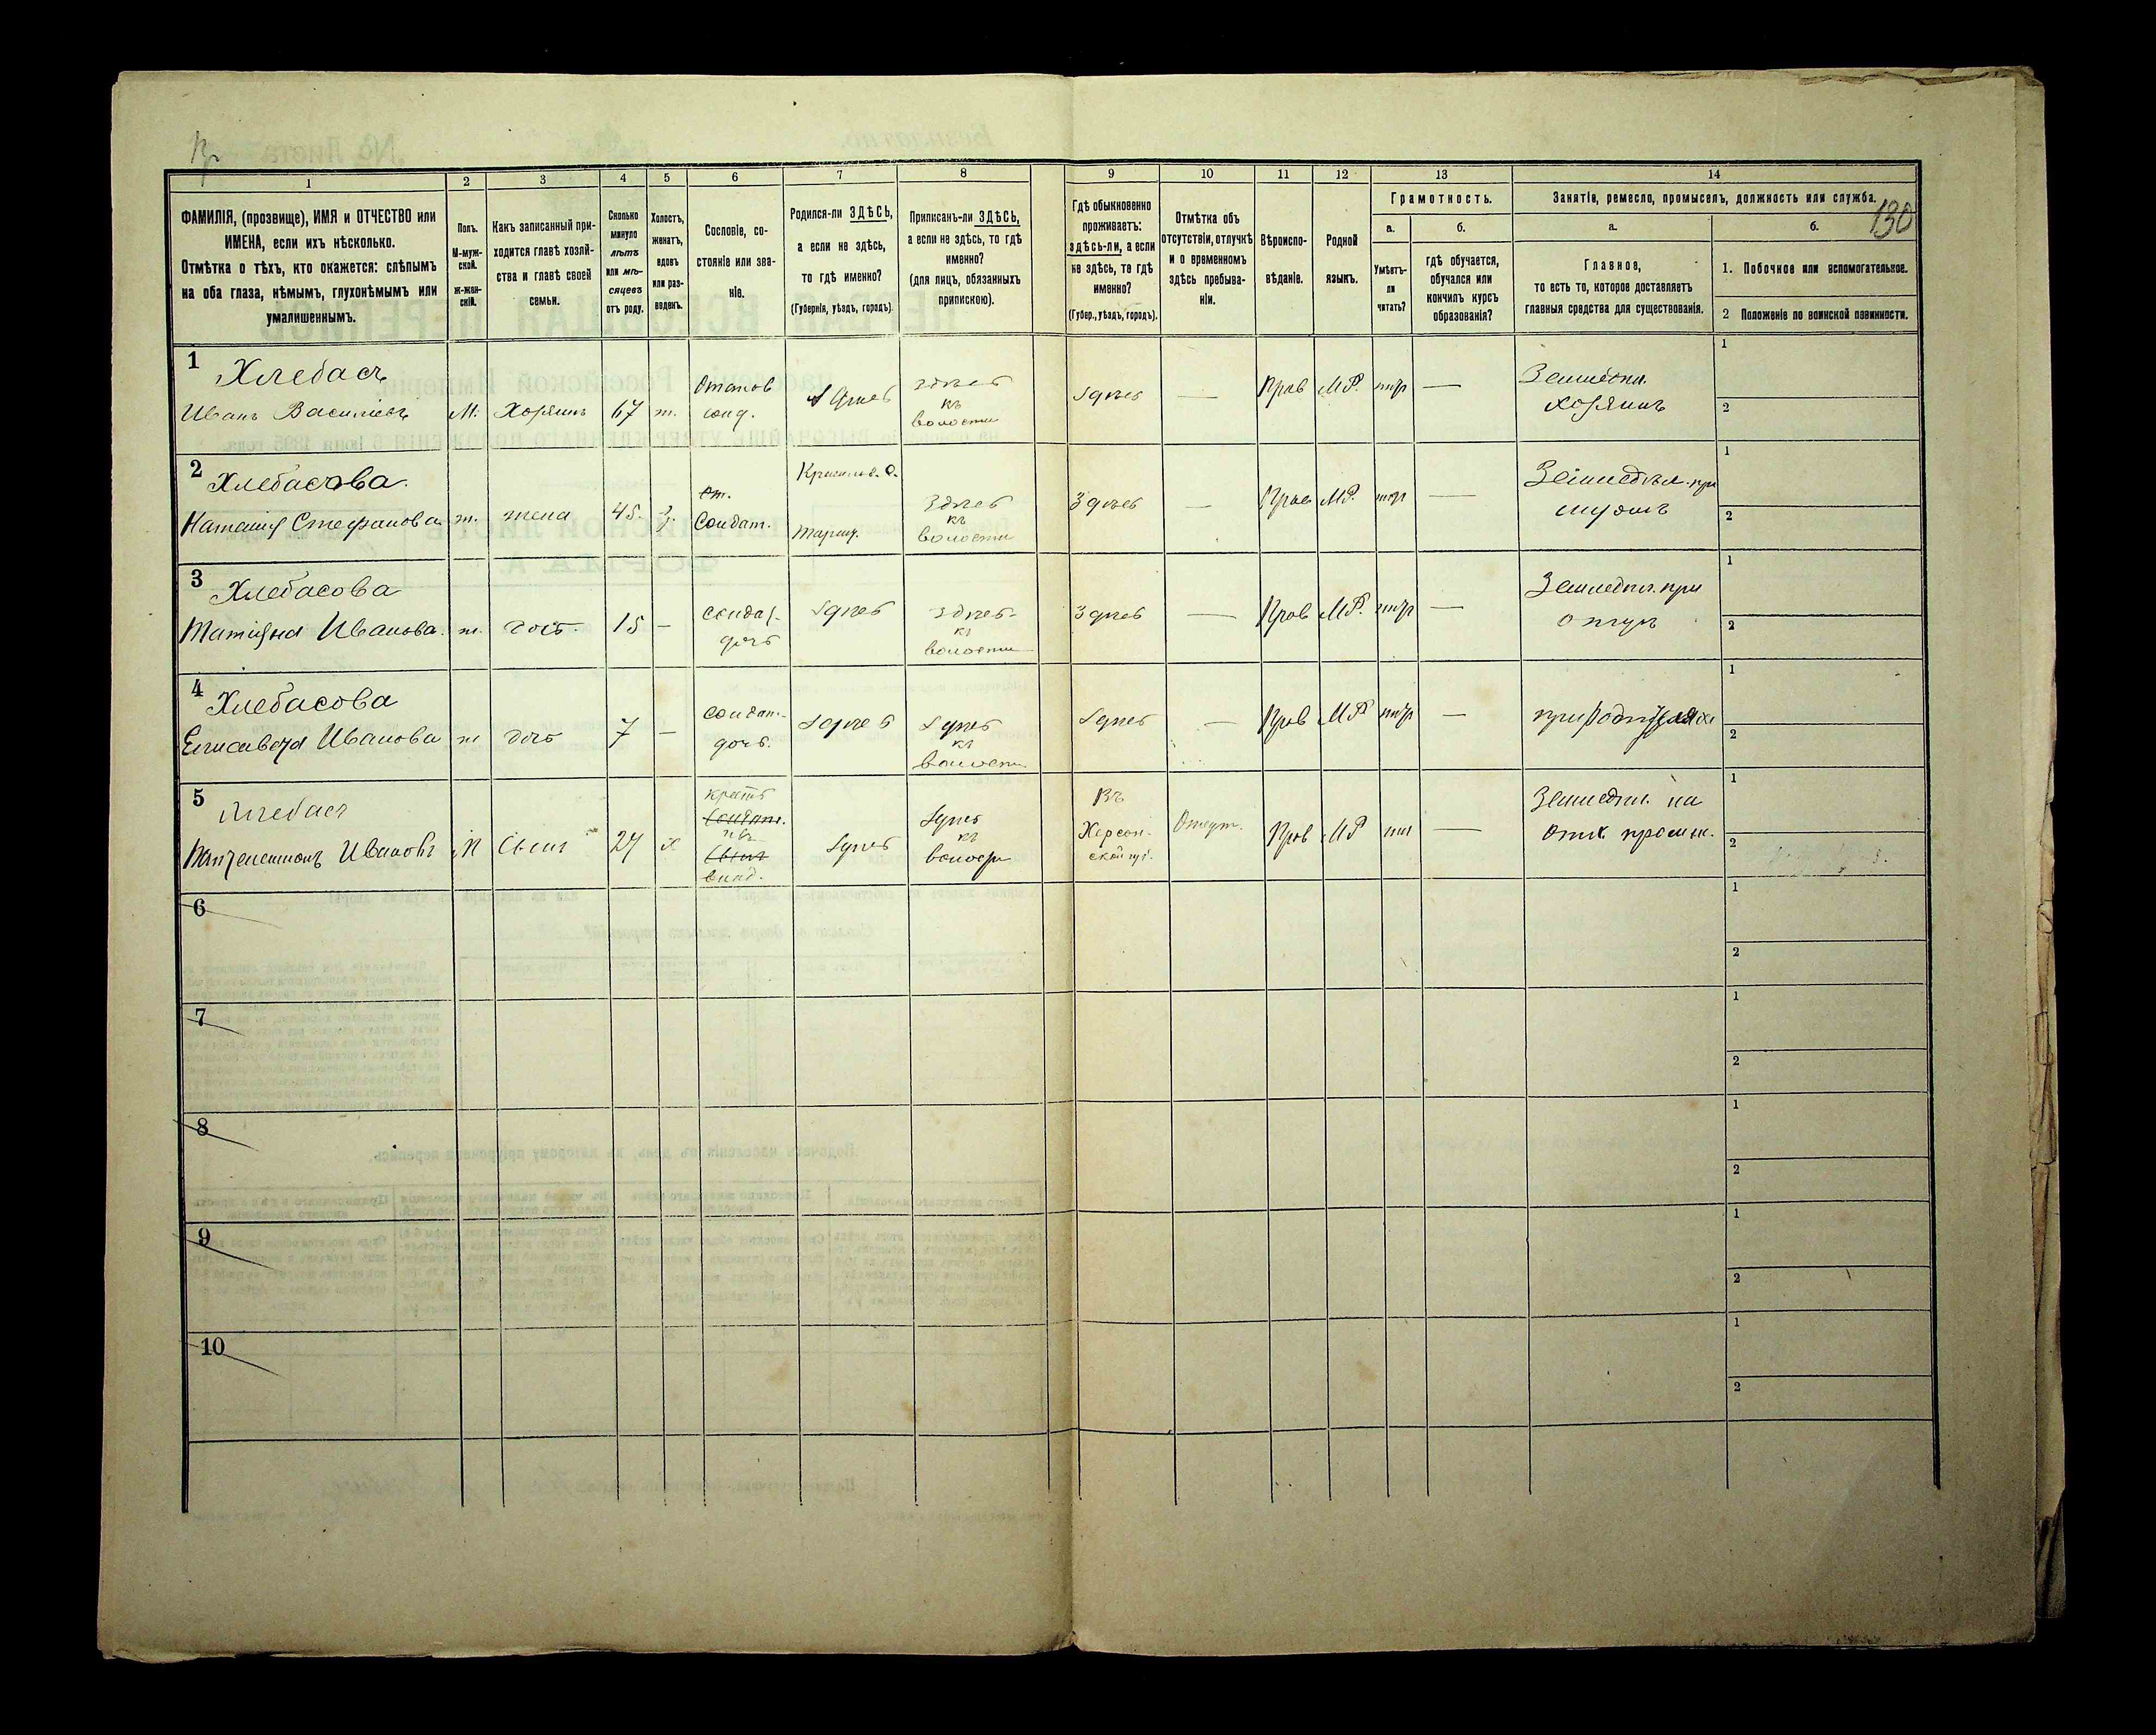 130
1
2
3
4
5
6
7
8
9
10
11
12
13
14
ФАМИЛІЯ, (прозвище), ИМЯ и ОТЧЕСТВО или
ИМЕНА, если ихъ нѣсколько.
Отмѣтка о тѣхъ, кто окажется: слѣпымъ
на оба глаза, нѣмымъ, глухонѣмымъ или
умалишеннымъ.
Полъ.
М-муж-
ской.
ж-жен-
скій.
Какъ записанный при-
ходится главѣ хозяй-
ства и главѣ своей
семьи.
Сколько
минуло
лѣтъ
или мѣ-
сяцевъ
отъ роду.
Холостъ,
женатъ,
вдовъ
или раз-
веденъ.
Сословіе, со-
стояніе или зва-
ніе.
Родился-ли ЗДѢСЬ,
а если не здѣсь,
то гдѣ именно?
(Губернія, уѣздъ, городъ).
Приписанъ-ли ЗДѢСЬ,
а если не здѣсь, то гдѣ
именно?
(для лицъ, обязанныхъ
припискою).
Гдѣ обыкновенно
проживаетъ:
здѣсь-ли, а если
не здѣсь, то гдѣ
именно?
(Губер., уѣздъ, городъ).
Отмѣтка объ
отсутствіи, отлучкѣ
и о временномъ
здѣсь пребыва-
ніи.
Вѣроиспо-
вѣданіе.
Родной
языкъ.
Грамотность.
а.
Умѣетъ-
ли
читать?
б.
гдѣ обучается,
обучался или
кончилъ курсъ
образованія?
Занятіе, ремесло, промыселъ, должность или служба.
а.
Главное,
то есть то, которое доставляетъ
главныя средства для существованія.
б.
1. Побочное или вспомогательное.
2 Положеніе по воинской повинности.
1
Хлебасъ
Иванъ Василіевъ
М.
Хозяинъ
67
ж.
Отстав
солд.
Здѣсь
здѣсь
къ
волости
Здѣсь
—
Прав
МР.
—
хозяинъ
1
2
2
Хлебасова
Наталія Стефанова
ж.
жена
45.
З.
Солдат.
Здѣсь
къ
волости
Здѣсь
—
Прав
МР.
—
Земледѣл. при
мужѣ
1
2
3
Хлебасова
Татіяна Иванова.
ж.
дочь.
15
—
солдат.
дочь
Здѣсь
здѣсь
къ
волости
Здѣсь
—
Прав
МР.
—
Земледѣл. при
отцѣ
1
2
4
Хлебасова
Елисавета Иванова
ж
дочь
7
—
Солдат.
дочь.
Здѣсь
Здѣсь
къ
волости
Здѣсь
—
Прав
МР
—
при родителяхъ
1
2
5
Хлебасъ
Пантелеимонъ Ивановъ
М
Сынъ
24
х
Здѣсь
Здѣсь
къ
волости
Въ
Херсон-
ской губ.
Отсут.
Прав
МР
—
Земледѣл. на
1
2
6
1
2
7
1
2
8
1
2
9
1
2
10
1
2